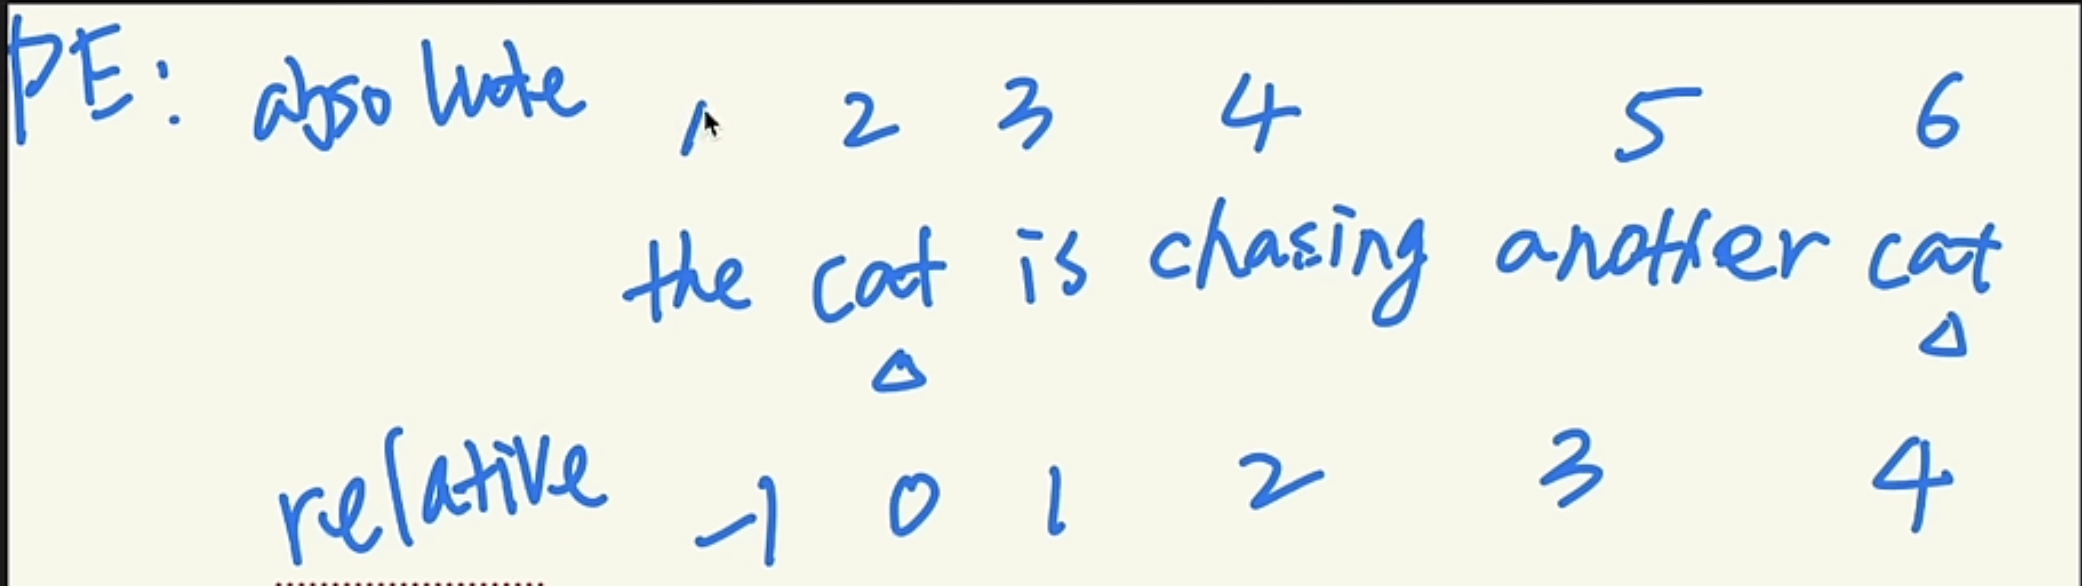 PE: absolute 1 2 3 4 5 6
the cat is chasing another cat
relative -1 0 1 2 3 4